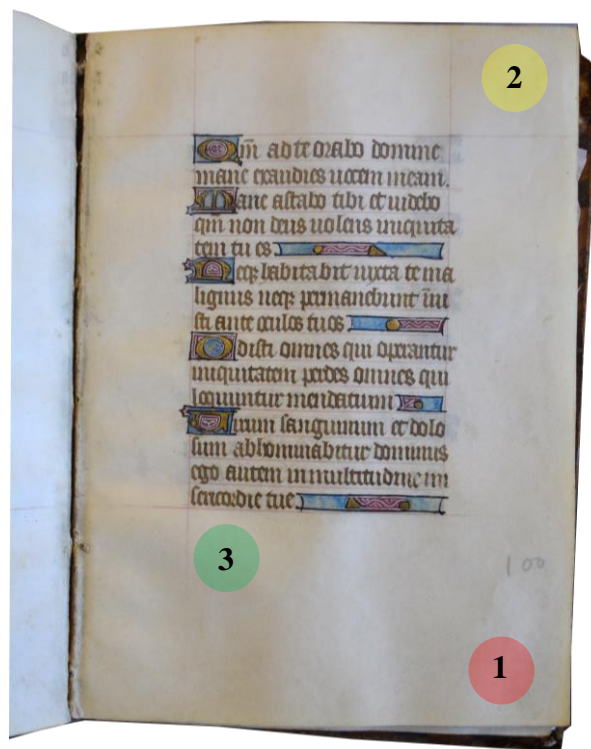 Qm̄ ad te orabo domine
mane exaudies uocem meam.
Mane astabo tibi et uidebo
qm̄ non deus uolens iniquita
tem tu es
Neqʒ habitabit iuxta te ma
lignus neqʒ permanebunt iniu
sti ante oculos tuos
Odisti omnes qui operantur
iniquitatem perdes omnes qui
loquuntur mendatium
Uirum sanguinum et dolo
sum abhominabitur dominus
ego autem in multitudine mi
sericordie tue
100
2
3
1